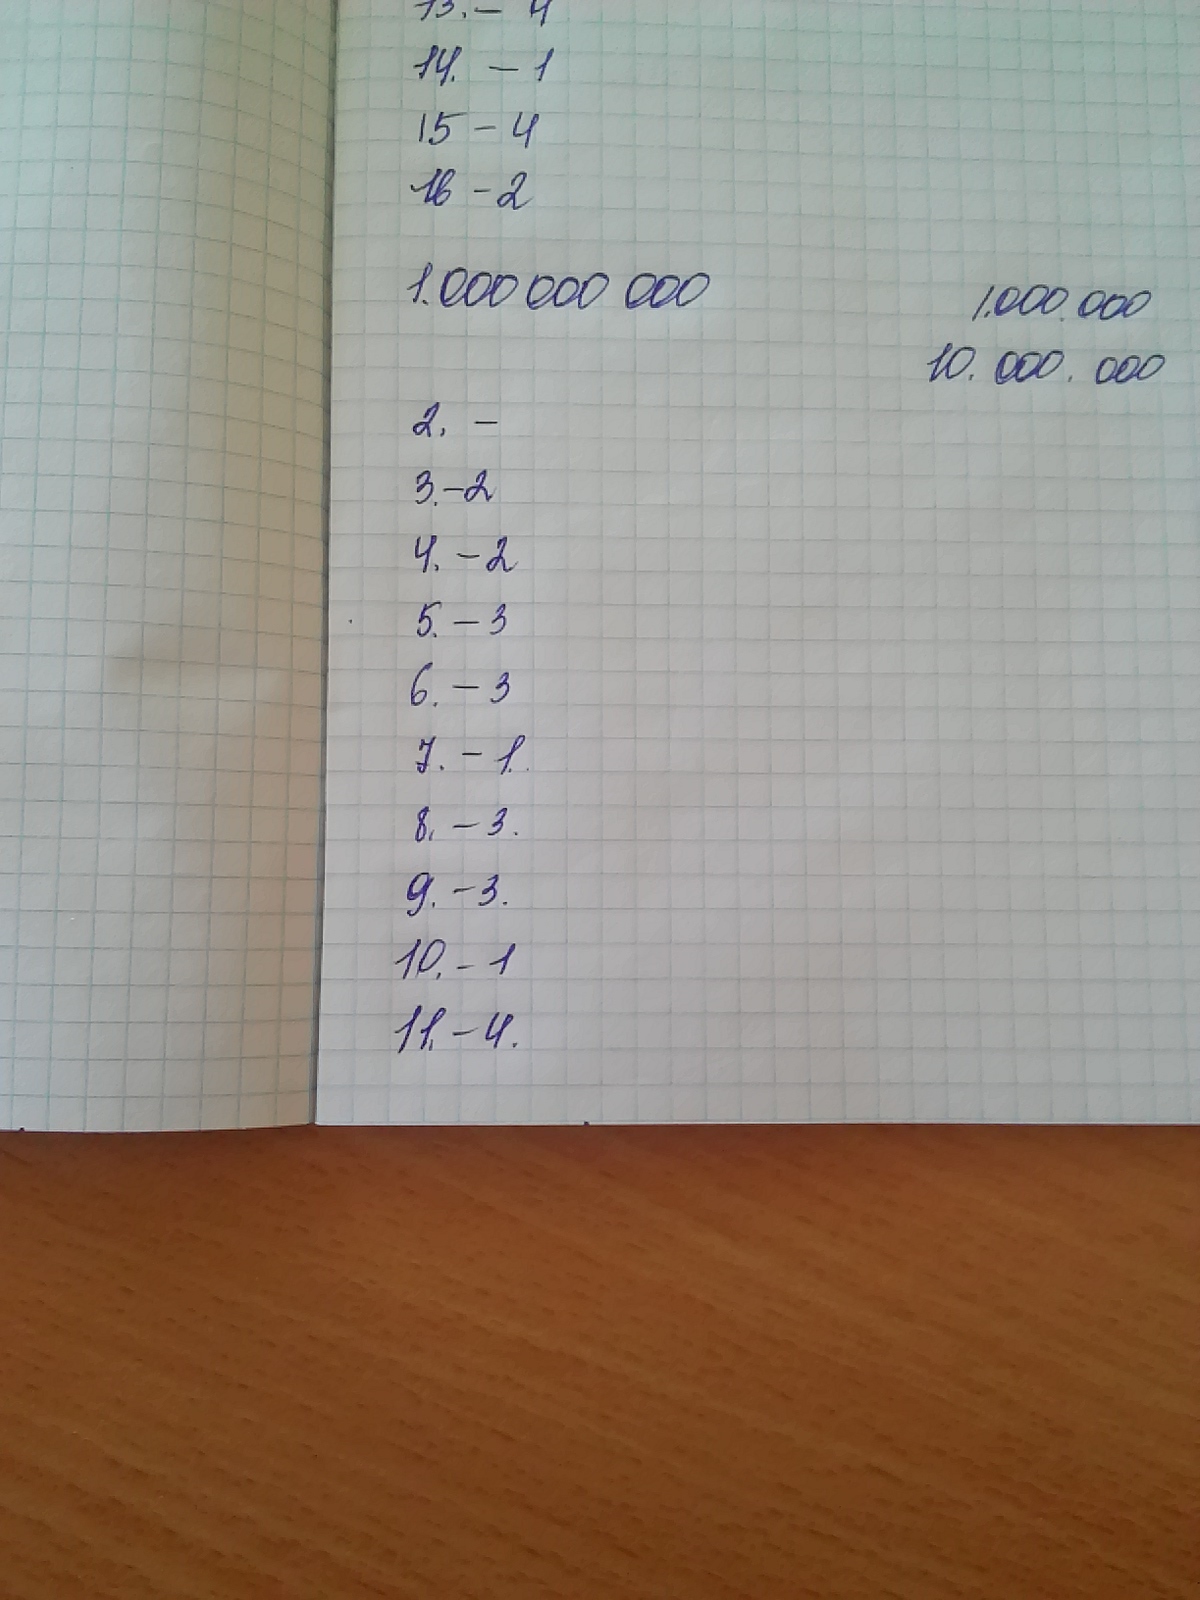 13. - 4
14. - 1
15 - 4
16 - 2
1.000 000 000
1.000.000
10.000.000
2. -
3. - 2
4. - 2
5. - 3
6. - 3
7. - 1.
8. - 3.
9. - 3.
10. - 1
11. - 4.